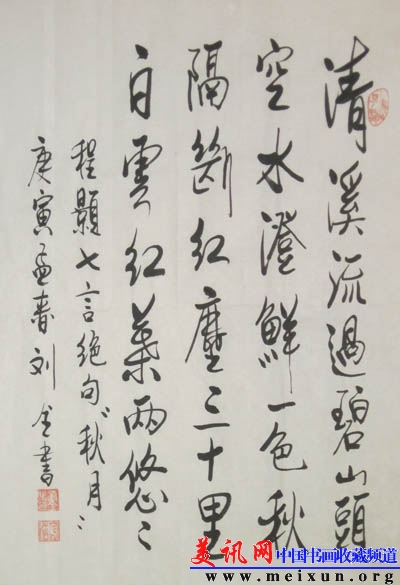 清溪流過碧山頭
空水澄鮮一色秋
隔斷紅塵三十里
白雲紅葉兩悠〻
程顥七言絕句〝秋月〞
庚寅孟春刘全書
美讯网 中国书画收藏频道
www.meixun.org